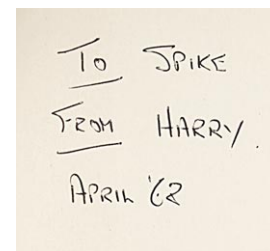 To SPIKE
FROM HARRY.
APRIL '62